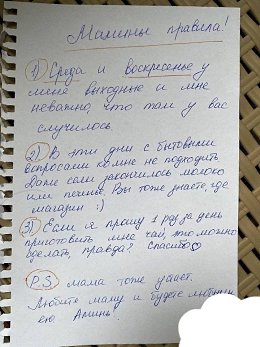 Мамины правила!
1) Среда и воскресенье у
меня выходные и мне
неважно, что там у вас
случилось
2) В эти дни с бытовыми
вопросами ко мне не подходить
Даже если закончилось молоко
или печенье. Вы тоже знаете, где
магазин :)
3) Если я прошу 1 раз за день
приготовить мне чай, это можно
сделать, правда? Спасибо♡
P.S. мама тоже устает.
Любите маму и будете любимы
ею Аминь!